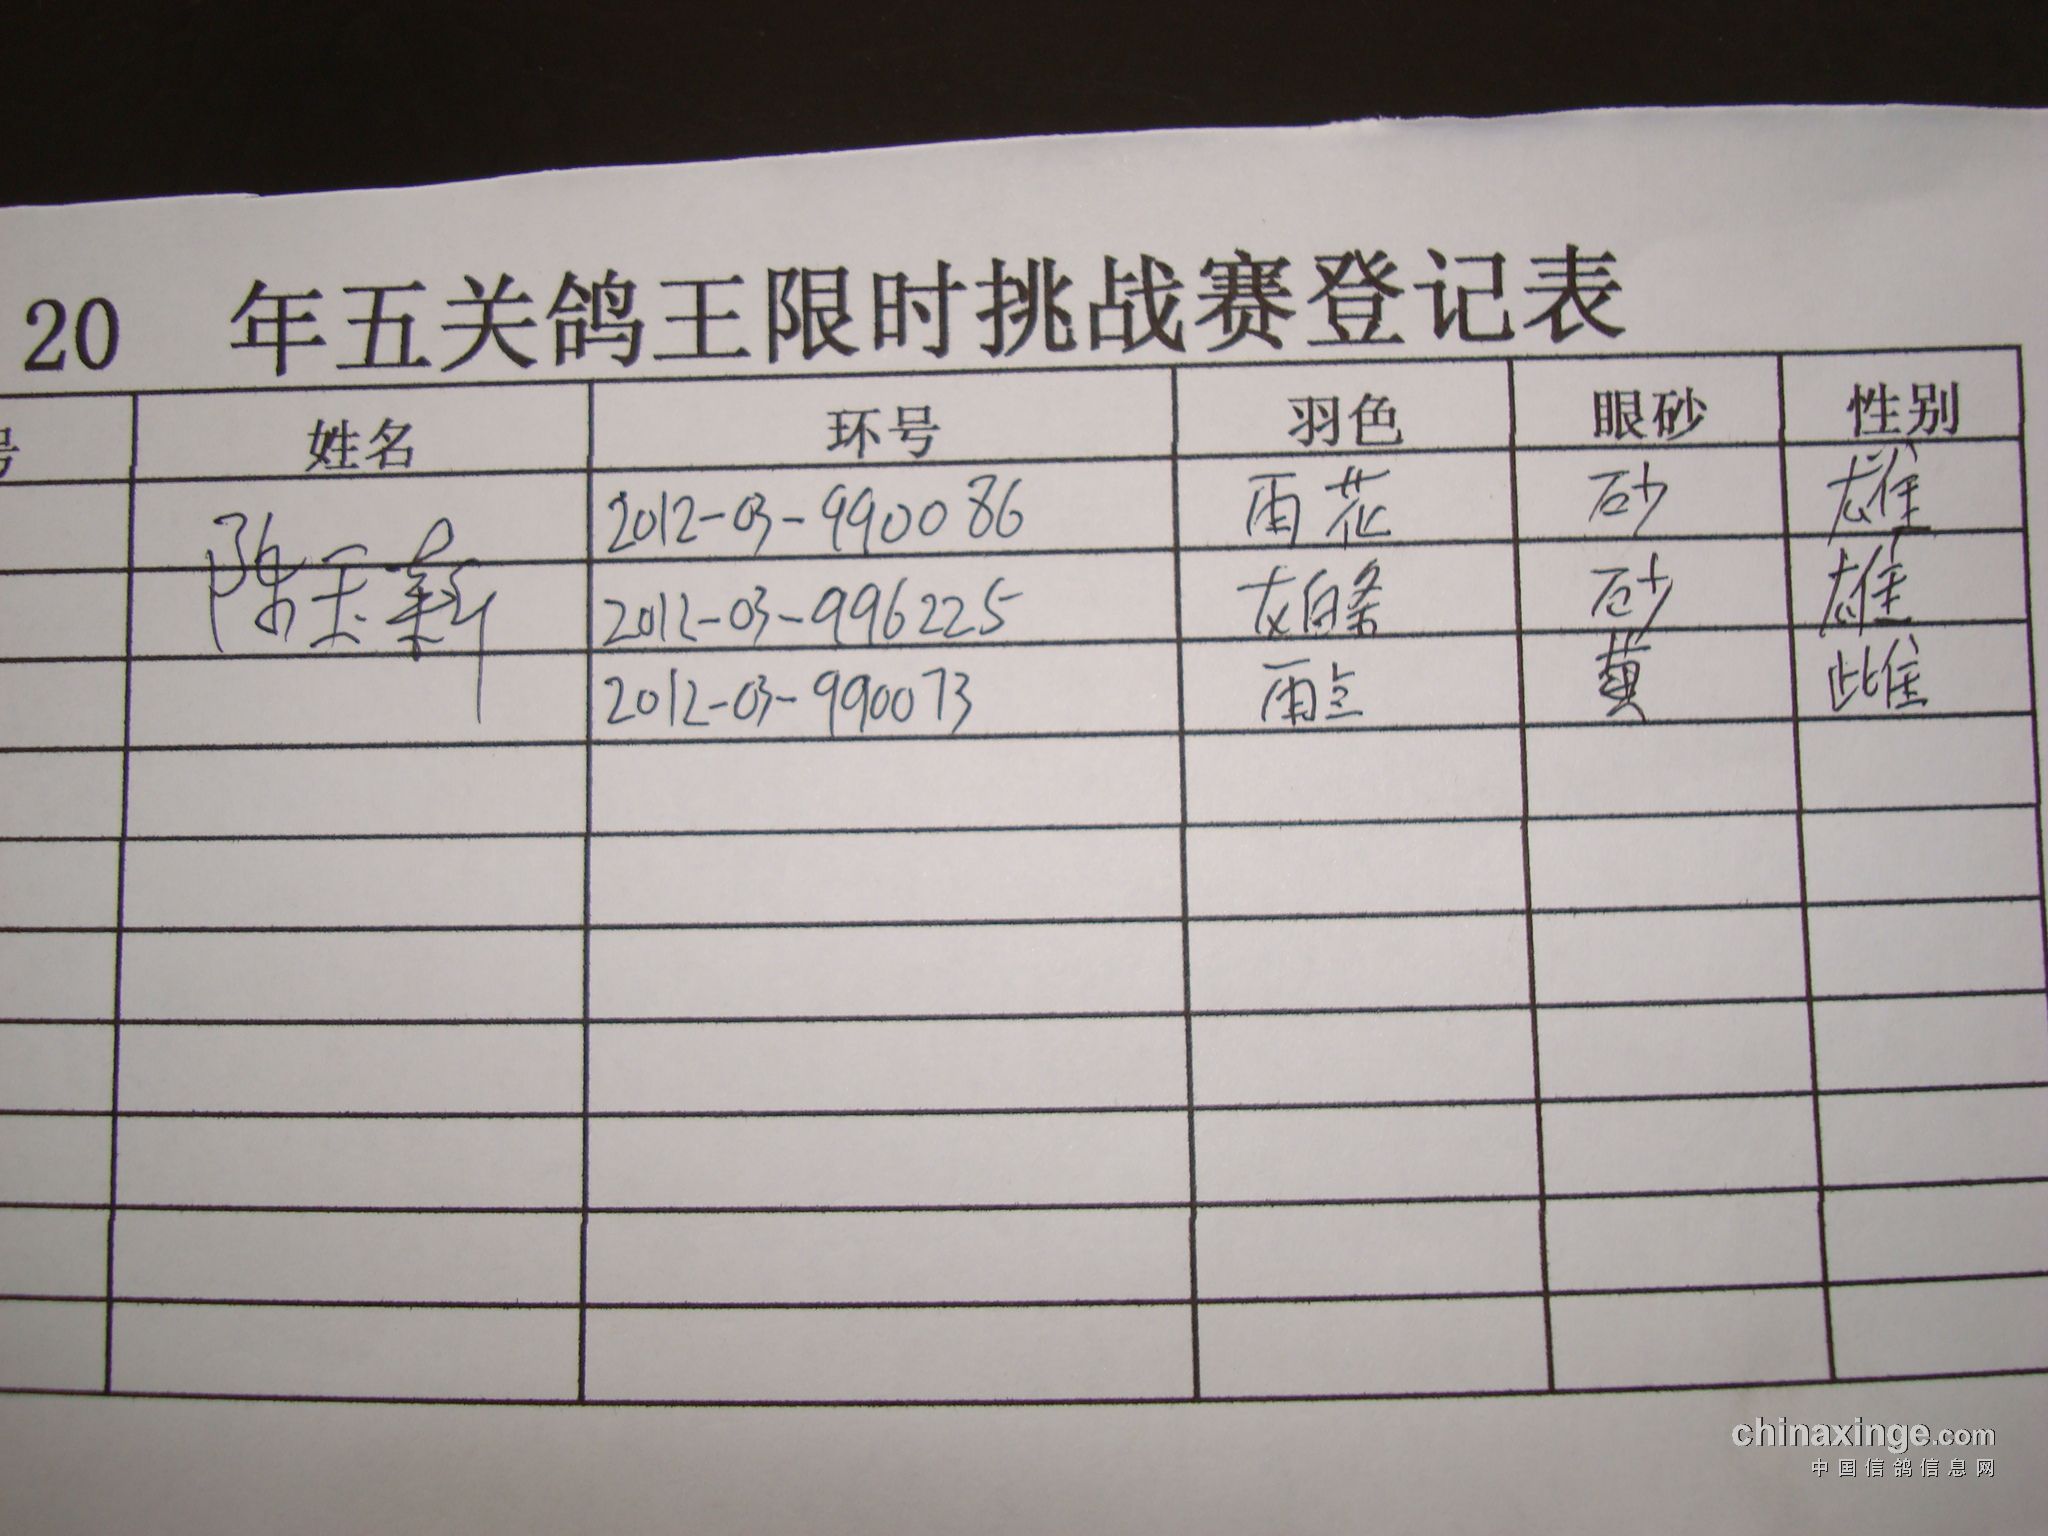 20 年五关鸽王限时挑战赛登记表
号 姓名 环号 羽色 眼砂 性别
陈玉新
2012-03-990086 雨花 砂 雄
2012-03-996225 灰白条 砂 雄
2012-03-990073 雨点 黄 雌
chinaxinge.com
中国信鸽信息网